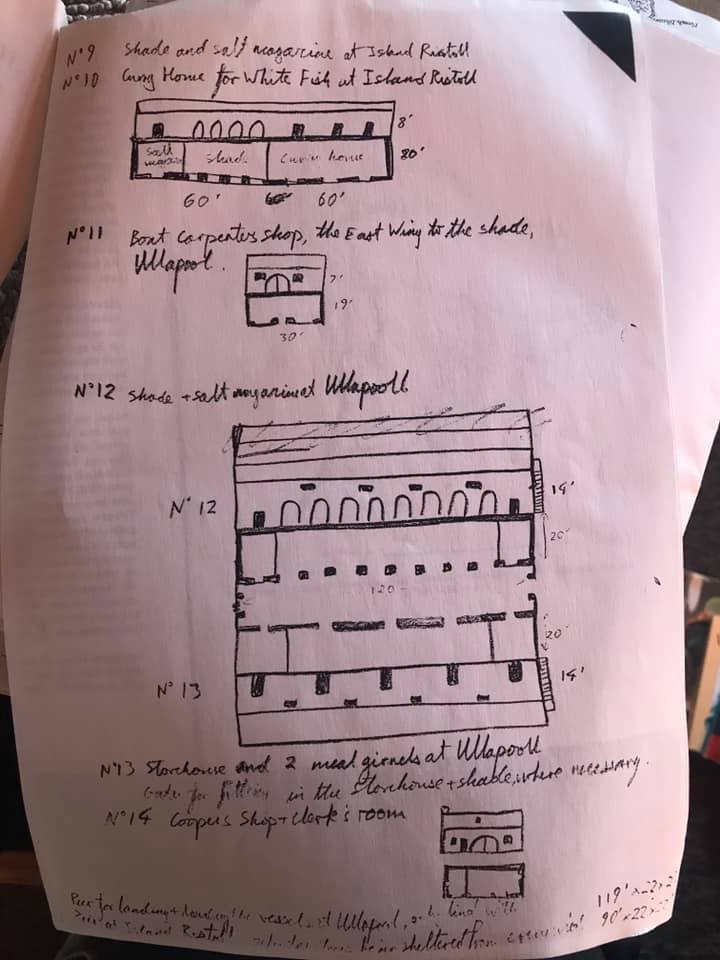 N°9 Shade and salt magazine at Island Ristoll
N°10 Curing House for White Fish at Island Ristoll
8'
Salt magazine shade Curing house 80'
60' 60' 60'
N°11 Boat Carpenters shop, the East Wing to the shade,
Ullapool.
7'
19'
30'
N°12 shade + salt magazine at Ullapooll
N° 12
14'
20'
120
20'
N° 13
14'
N°13 Storehouse and 2 meal girnels at Ullapooll
in the storehouse + shade, where necessary.
N°14 Coopers Shop + clerk's room
Pier for landing + loading the vessels at Ullapool, 119' x 22 x
Pier at Island Ristoll sheltered from 90' x 22 x